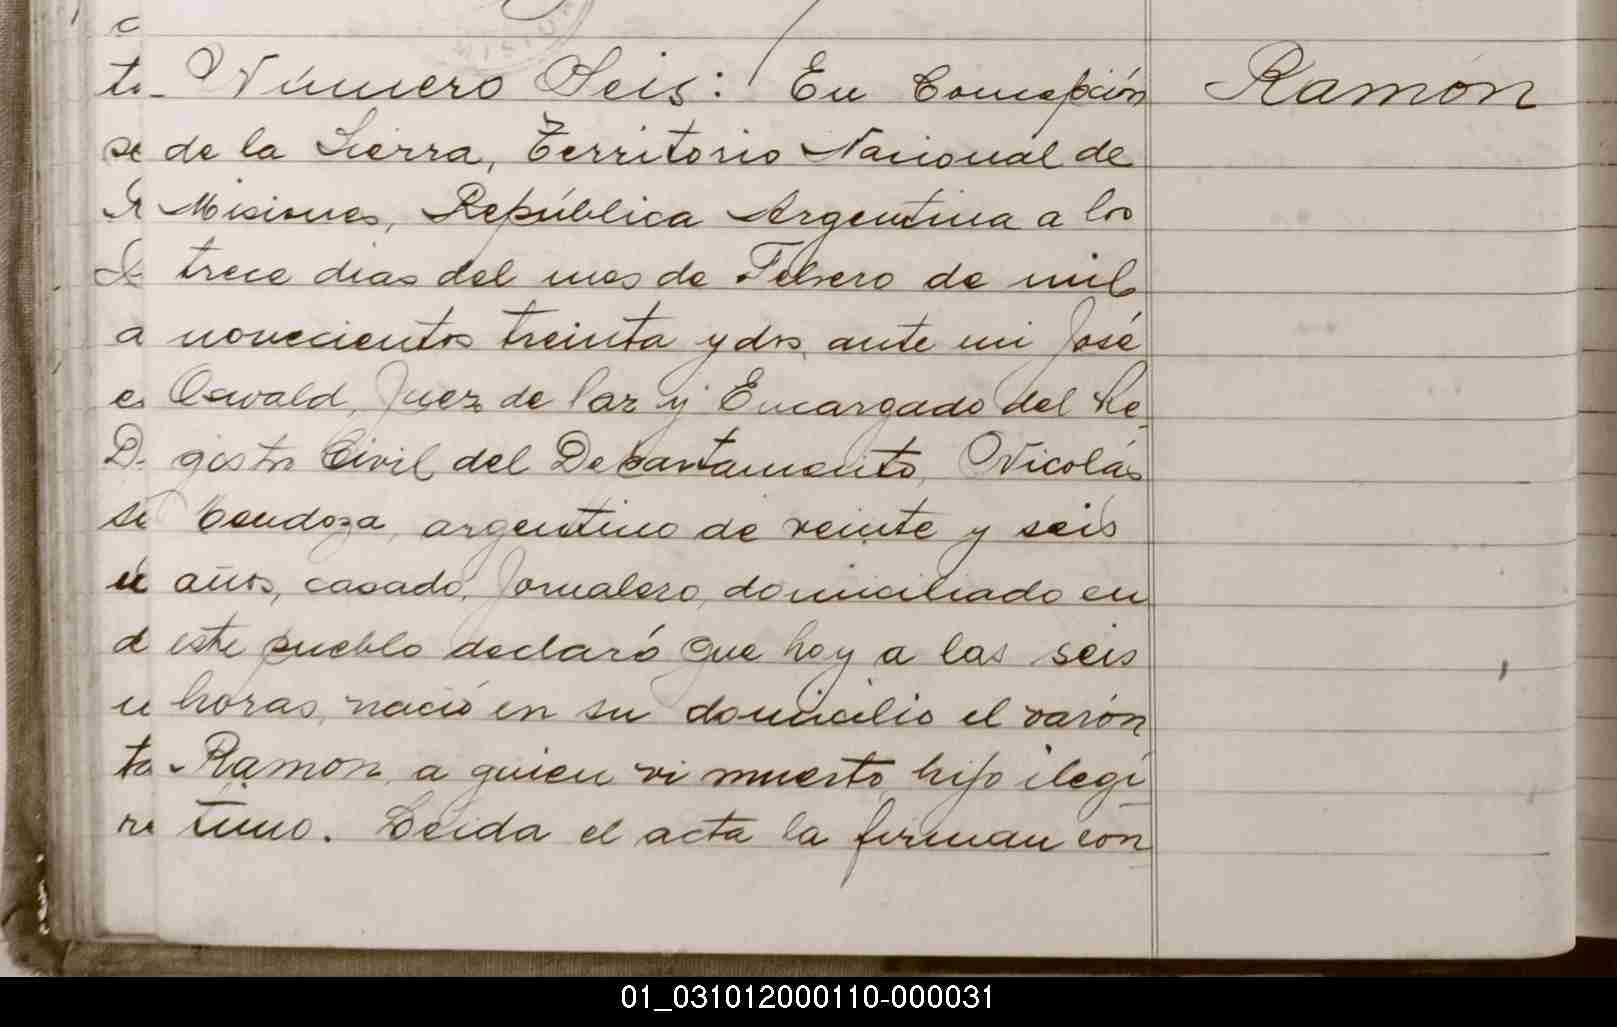 Número Seis: En Concepción
Ramón
de la Sierra, Territorio Nacional de
Misiones, República Argentina a los
trece dias del mes de Febrero de mil
novecientos treinta y dos, ante mi José
Oswald, Juez de Paz y Encargado del Re-
gistro Civil del Departamento, Nicolás
Mendoza, argentino de veinte y seis
años, casado, Jornalero, domiciliado en
este pueblo declaró que hoy a las seis
horas, nació en su domicilio el varón
Ramon, a quien vi muerto, hijo ilegi-
timo. Leida el acta la firman con
01_031012000110-000031